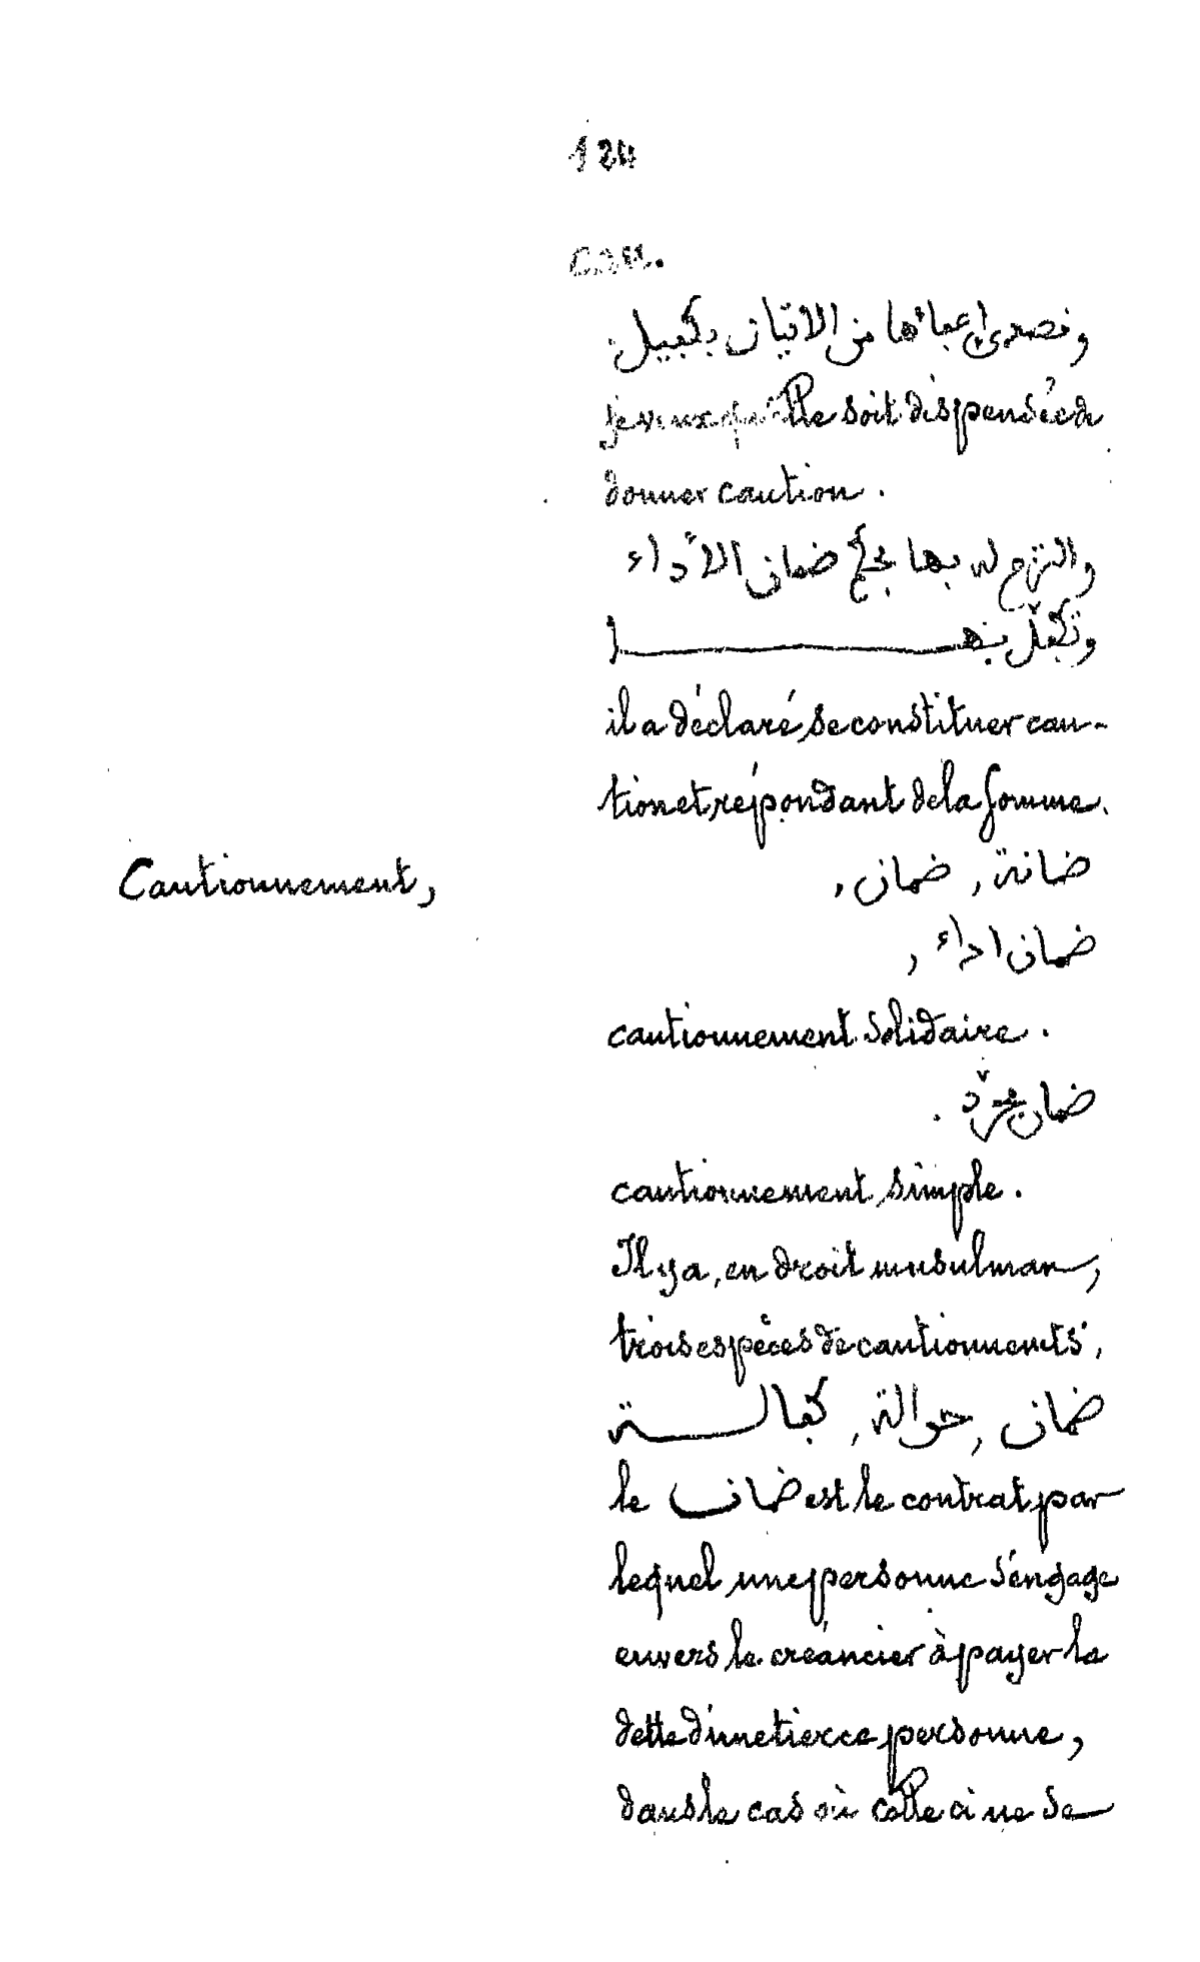 124
cau.
وقصدي إعفاءها من الاتيان بكفيل.
je veux qu'elle soit dispensée de
donner caution.
والتزم له بها بحكم ضمان الأداء
وتكفّل بها
il a déclaré se constituer cau-
tion et répondant de la somme.
Cautionnement,
ضمانة, ضمان,
ضمان اداء,
cautionnement solidaire.
ضمان مجرّد.
cautionnement simple.
Il y a, en droit musulman,
trois espèces de cautionnements,
ضمان, حوالة, كفالة
le ضمان est le contrat par
lequel une personne s'engage
envers le créancier à payer la
dette d'une tierce personne,
dans le cas où celle ci ne se